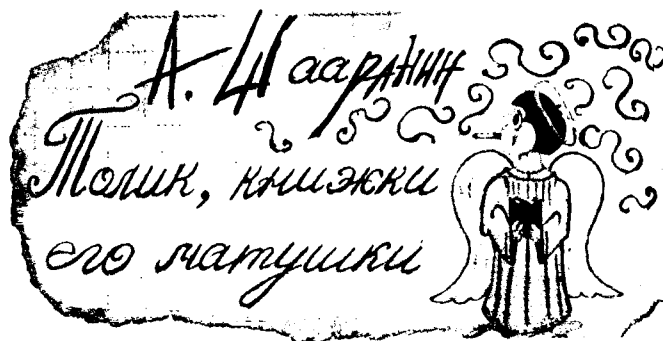 А. Шааранин
Толик, книжки
его матушки